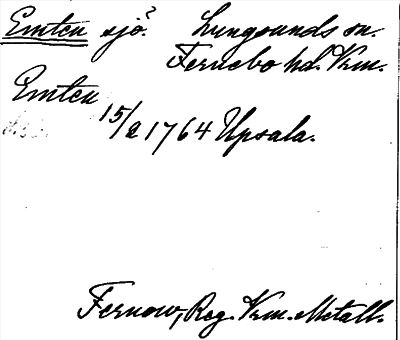 Emten sjö? Lungsunds sn.
Fernebo hd. Vrm.
Emten
15/2 1764 Upsala.
Fernow, Reg. Vrm. Metall.